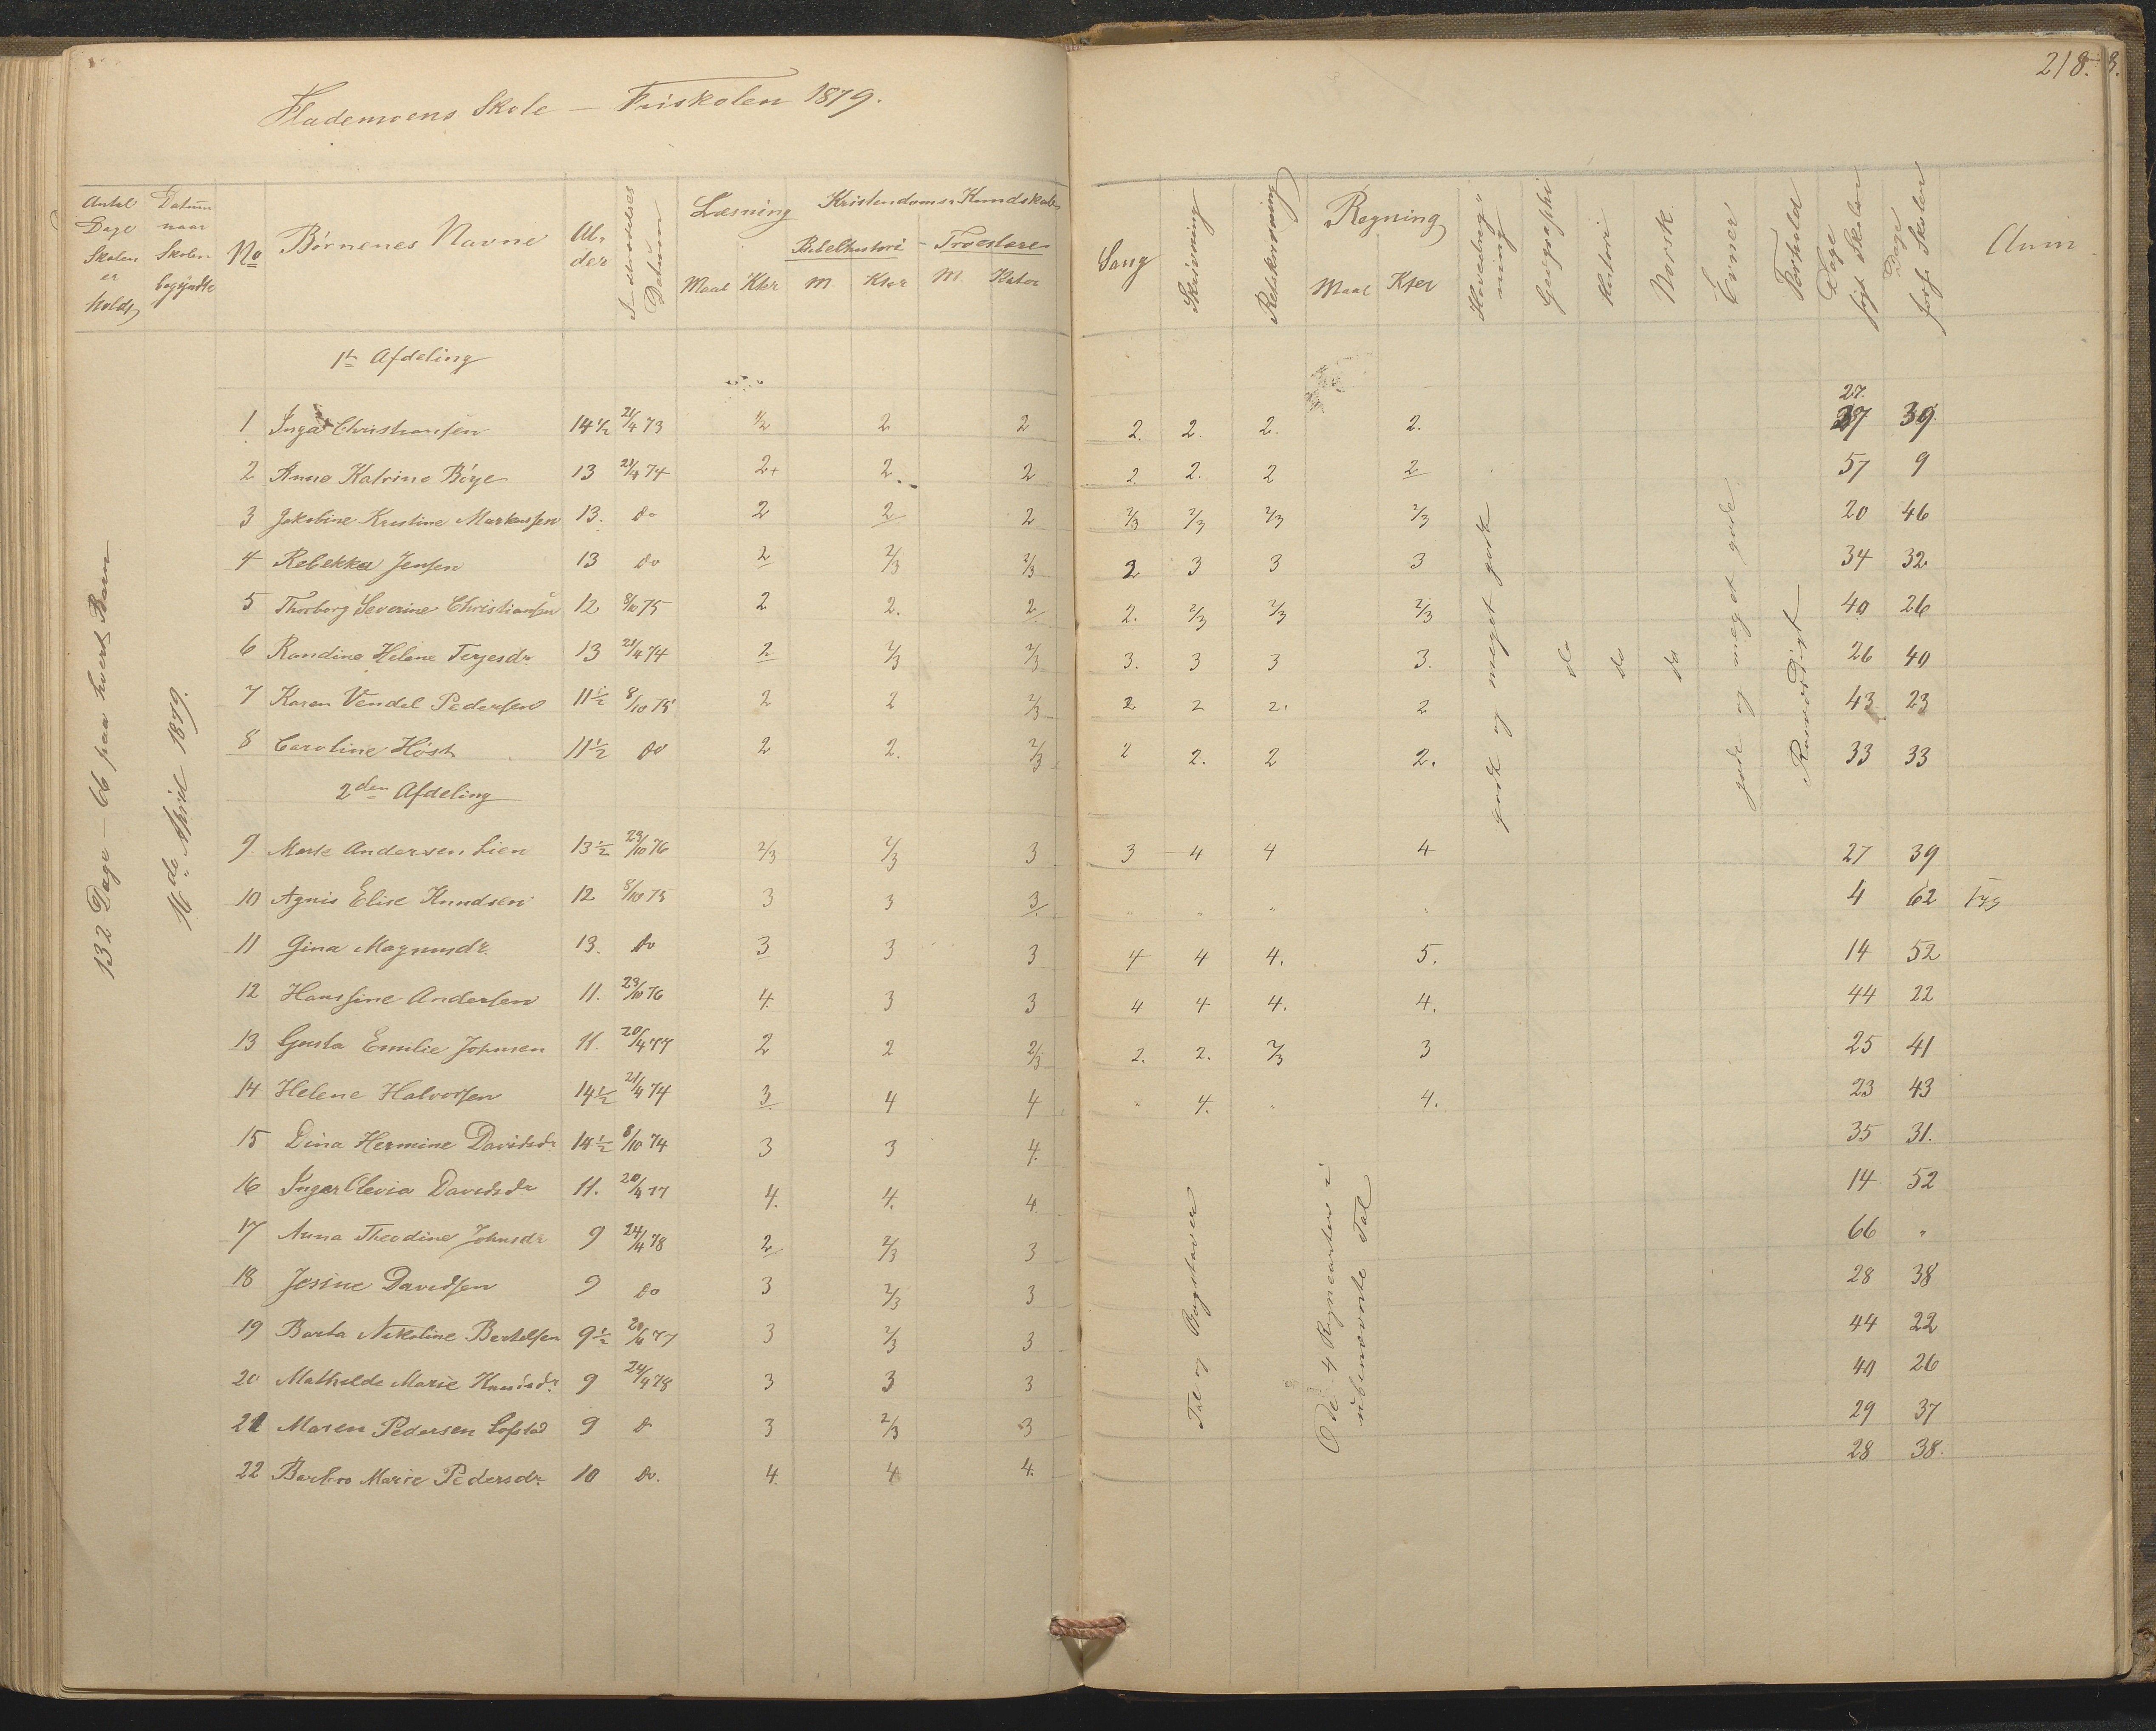 218.
Flademoens Skole — Friskolen 1879.
Antal Dage Skolen er holdt
Datum naar Skolen begyndte
No
Børnenes Navne
Alder
Indtrædelses Datum
Læsning
Maal Kter
Kristendoms Kundskaber
Bibelhistori - Troeslære
M Kter M Kakter
Sang
Skrivning
Retskrivning
Regning
Maal Kter
Hovedregning
Geographi
Histori
Norsk
Evner
Forhold
Dage søgt Skolen
Dage fors. Skolen
Anm
132 Dage - 66 paa hvert Barn
16de April 1879.
1te Afdeling
1 Inga Christiansen 14 1/2 21/4 73 1/2 2 2 2. 2. 2. 2. 27. 37 39.
2 Anne Katrine Böye 13 21/4 74 2+ 2. 2 2 2. 2 2 57 9
3 Jakobine Kristine Markussen 13. do 2 2 2 2/3 2/3 2/3 2/3 20 46
4 Rebekka Jensen 13 do 2 2/3 2/3 2 3 3 3 34 32
5 Thorborg Severine Christiansen 12 8/10 75 2 2. 2 2. 2/3 2/3 2/3 40 26
6 Randine Helene Terjesdr. 13 21/4 74 2 2/3 2/3 3. 3 3 3. 26 40
7 Karen Vendel Pedersen 11 1/2 8/10 75 2 2 2/3 2 2 2. 2 43 23
8 Caroline Höst 11 1/2 do 2 2. 2/3 2 2. 2 2. 33 33
godt og meget godt
do
do
do
gode og meget gode
Rosværdigt
2den Afdeling
9. Marte Andersen Lien 13 1/2 23/10 76 2/3 2/3 3 3 4 4 4 27 39
10 Agnis Elise Knudsen 12 8/10 75 3 3 3 " " " " 4 62
11 Gina Magnusdr. 13. do 3 3 3 4 4 4. 5. 14 52
12 Hansine Andersen 11. 23/10 76 4. 3 3 4 4 4. 4. 44 22
13 Gusta Emilie Johnsen 11. 20/4 77 2 2 2/3 2. 2. 2/3 3 25 41
14 Helene Halvorsen 14 1/2 21/4 74 3. 4 4 " 4. " 4. 23 43
15 Dina Hermine Davidsdr 14 1/2 8/10 74 3 3 4. 35 31.
16 Inger Olevia Davidsdr 11. 20/4 77 4. 4. 4. 14 52
17 Anna Theodine Johnsdr 9 24/4 78 2 2/3 3 66 "
18 Jesine Davidsen 9 do 3 2/3 3 28 38
19 Barta Nikoline Bertelsen 9 1/2 20/4 77 3 2/3 3 44 22
20 Mathilde Marie Knudsdr. 9 24/4 78 3 3 3 40 26
21 Maren Pedersen Lofstad 9 do 3 2/3 3 29 37
22 Barbro Marie Pedersdr. 10 do. 4. 4 4. 28 38.
Tal og Bogstaver
De 4 Regnearter i
ubenævnte Tal